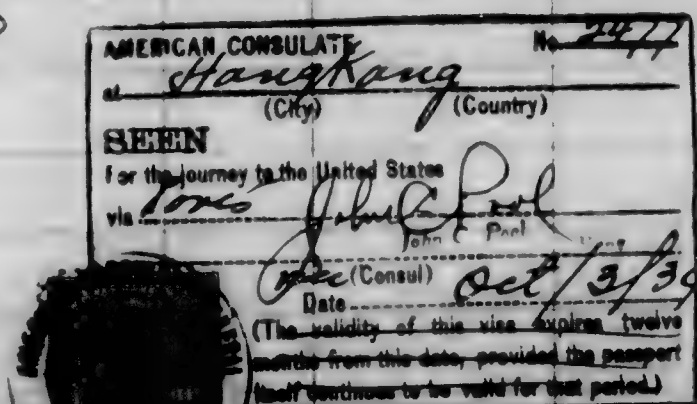 AMERICAN CONSULATE No. 2477
at HongKong
(City) (Country)
SEEN
For the journey to the United States
via
John C Pool
John C Pool
(Consul)
Date Oct/3/39
(The validity of this visa expires twelve
months from this date, provided the passport
itself continues to be valid for that period.)